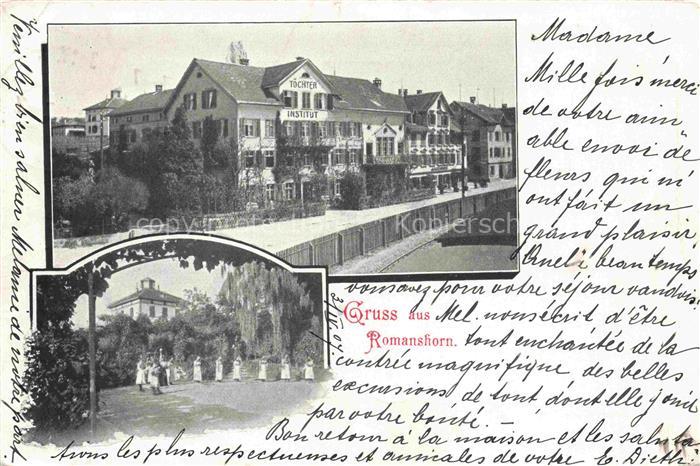 TÖCHTER
INSTITUT
Gruss aus
Romanshorn.
Madame
Mille fois merci
de votre aim
able envoi de
fleurs qui m'
ont fait un
grand plaisir
Quelle beau temps
vous avez pour votre séjour vaudois,
Mel. nous écrit d'être
tout enchantée de la
contrée magnifique, des belles
excursions, de tout, dont elle jouit
par votre bonté. –
Bon retour à la maison et les saluta
tions les plus respectueuses et amicales de votre E. Dieth.
Veuillez bien saluer Melanie de notre part
copyright by Ansichtskarten Kopierschutz